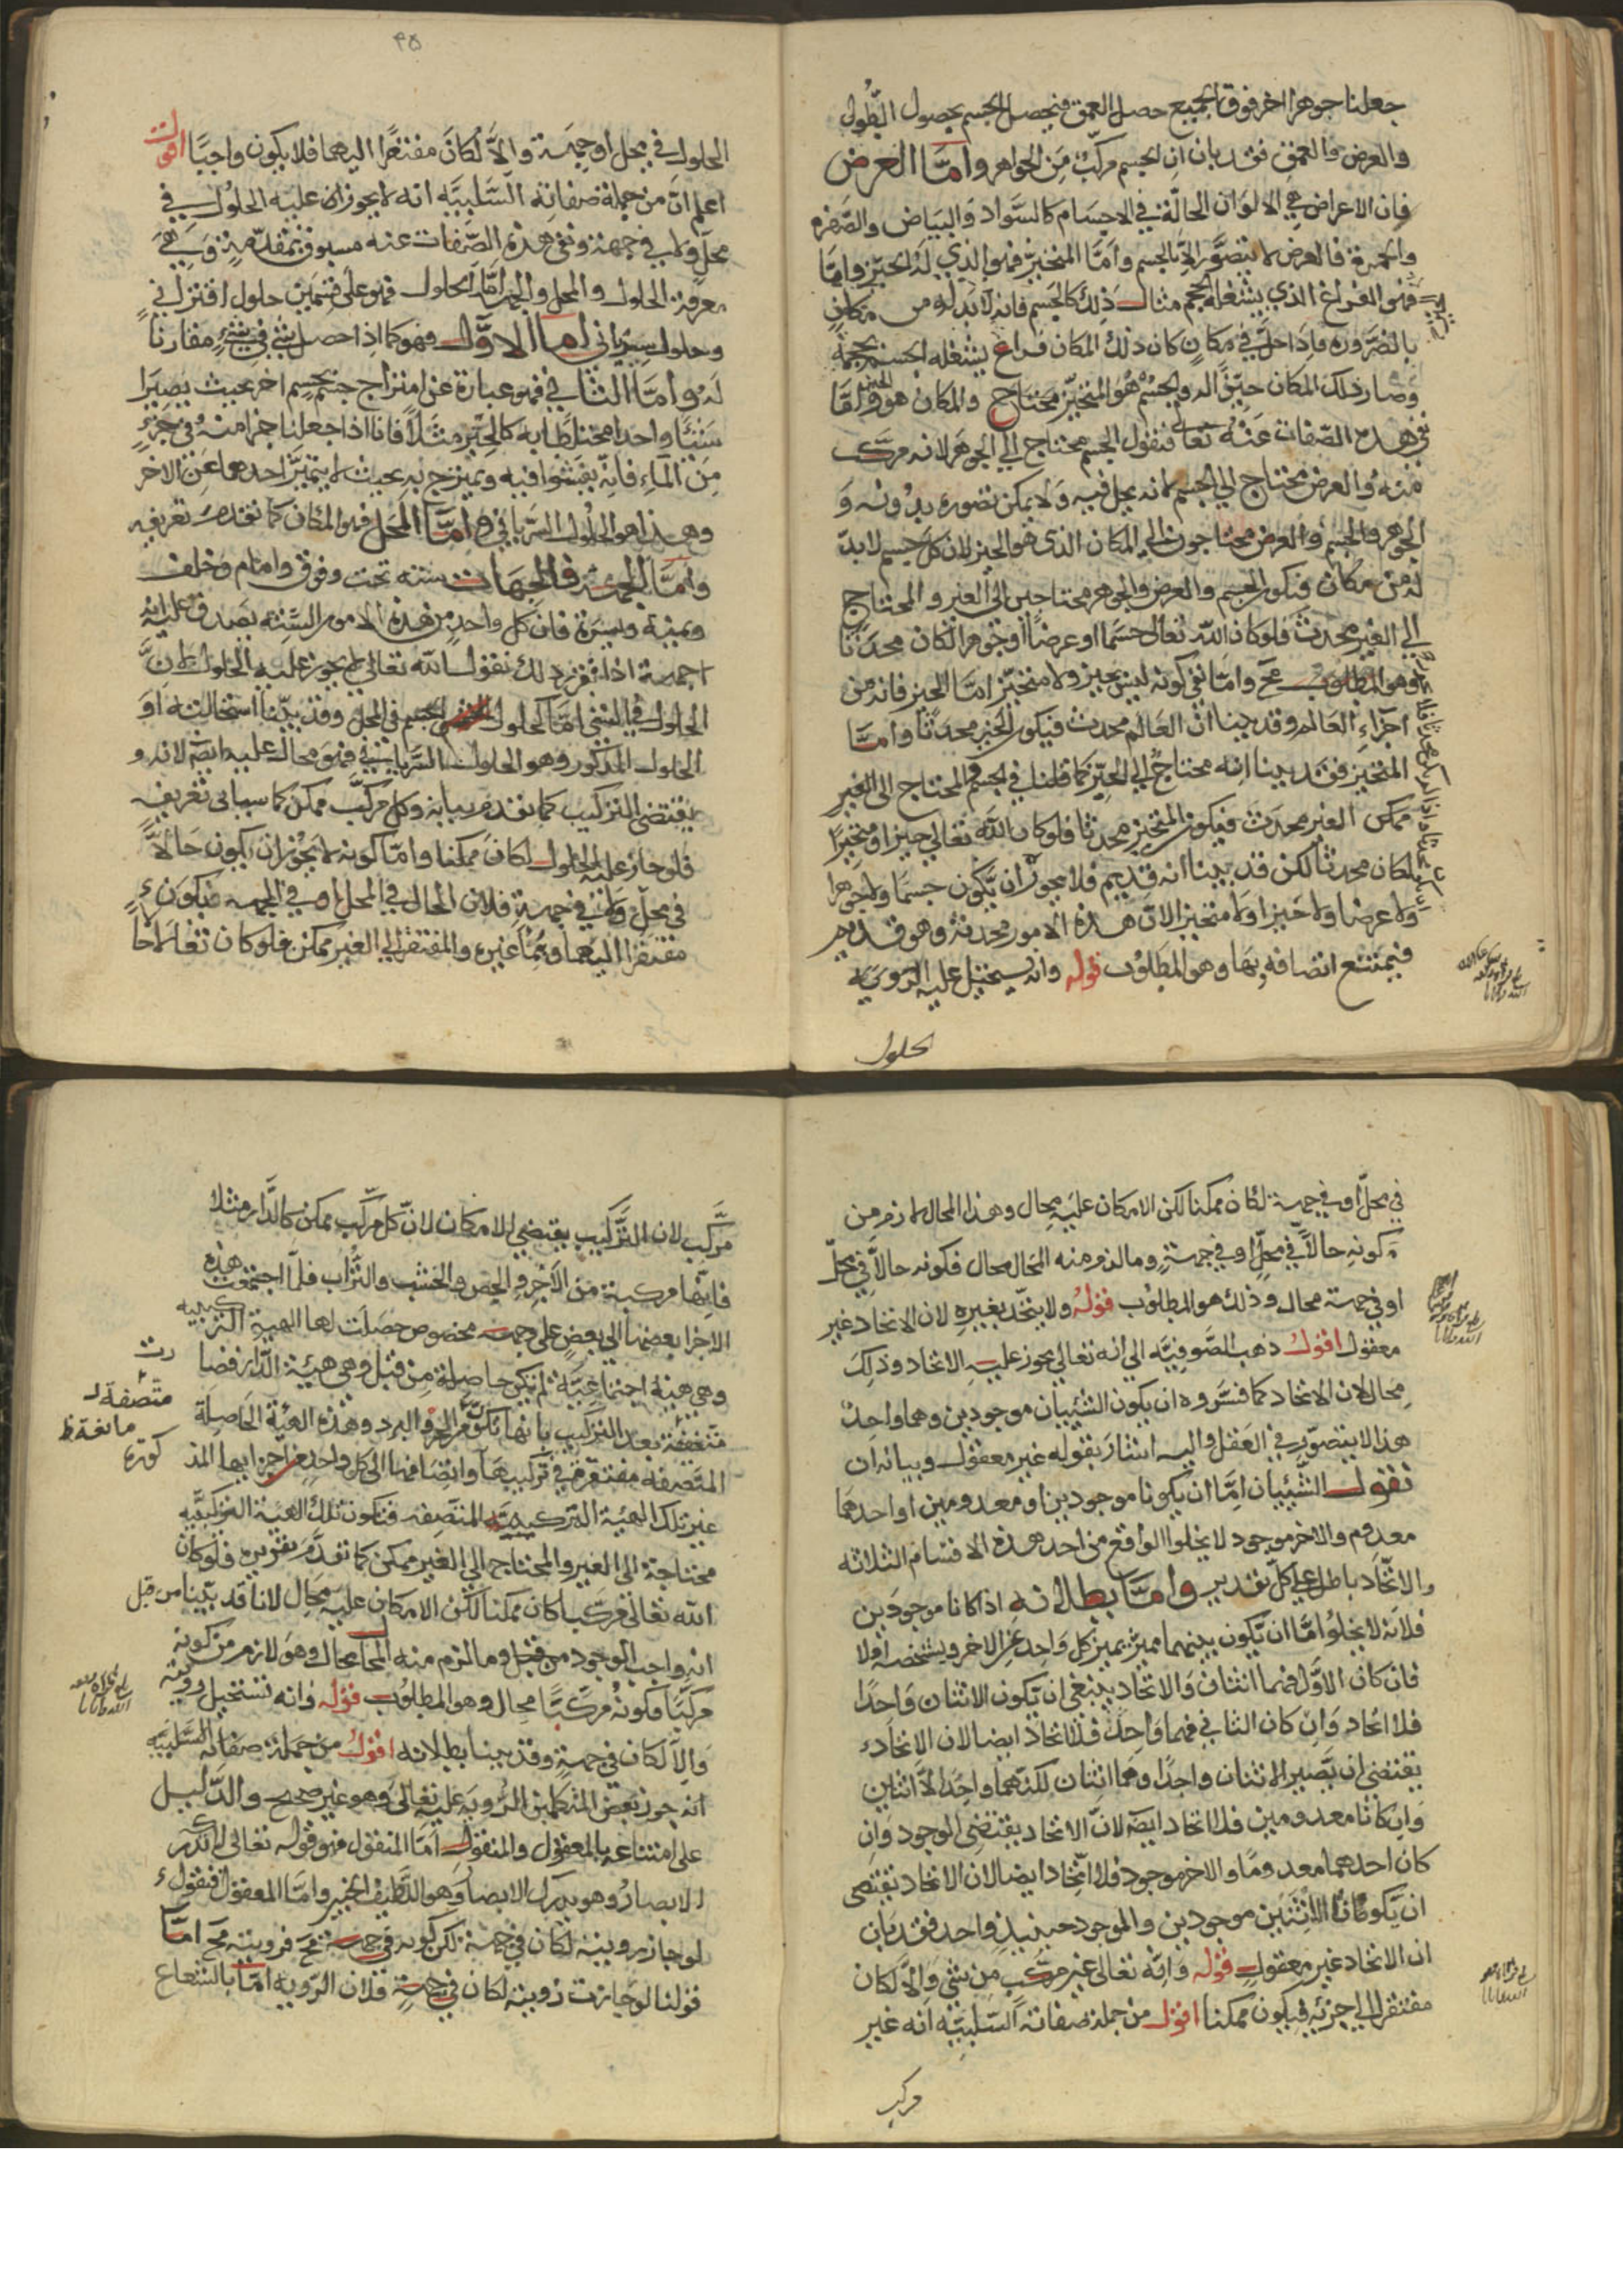 جعلنا جوهرا اخر فوق الجميع حصل العمق فيحصل الجسم بحصول الطول
والعرض والعمق فقد بان ان الجسم مركب من الجواهر واما العرض
فان الاعراض هي الالوان الحالة في الاجسام كالسواد والبياض والصفره
والحمرة فالعرض لا يتصور الا بالجسم واما المتحيز فهو الذي له الحيز واما
فهو الفراغ الذي يشغله الجسم مثال ذلك كالجسم فانه لابد له من مكان
بالضرورة فاذا حل في مكان كان ذلك المكان فراغ يشغله الجسم بحجمه
وصار ذلك المكان حيزا له والجسم هو المتحيز محتاج والمكان هو الحيز واما
نفي هذه الصفات عنه تعالى فنقول الجسم محتاج الي الجوهر لانه مركب
منه والعرض محتاج الي الجسم لانه يحل فيه ولا يمكن تصوره بدونه و
الجوهر والجسم والعرض محتاجون الي المكان الذي هو الحيز لان كل جسم لابد
له من مكان فيكون الجسم والعرض والجوهر محتاجين الى الغير والمحتاج
الى الغير محدث فلو كان الله تعالى جسما او عرضا او جوهرا لكان محدثا
وهو المطلوب مح واما نفي كونه ليس بحيز ولا متحيز اما الحيز فانه من
اجزاء العالم وقد بينا ان العالم محدث فيكون الحيز محدثا واما
المتحيز فقد بينا انه محتاج الي الحيز كما قلنا في الجسم والمحتاج الى الغير
ممكن الغير محدث فيكون المتحيز محدثا فلو كان الله تعالي حيزا او متحيزا
لكان محدثا لكن قد بينا انه قديم فلا يجوز ان يكون جسما ولا جوهرا
ولا عرضا ولا حيزا ولا متحيزا لان هذه الامور محدثة وهو قديم
فيمتنع اتصافه بها وهو المطلوب قوله وانه يستحيل عليه الرويه
حلول
٤٥
الحلول في محل او جهة والا لكان مفتقرا اليهما فلا يكون واجبا اقول
اعلم ان من جملة صفاته السلبيه انه لا يجوز ان عليه الحلول في
محل ولا في جهة ونفي هذه الصفات عنه مسبوق بمقدمة وهي
معرفة الحلول والمحل والجهة اما الحلول فهو على قسمين حلول اقتراني
وحلول سرياني اما الاول فهو كما اذا حصل شي في شيء مقارنا
له واما الثاني فهو عبارة عن امتزاج جسم بجسم اخر بحيث يصيرا
شيئا واحدا مختلطا به كالحبر مثلا فانا اذا جعلنا جزا منه في جزء
من الماء فانه يفشوا فيه ويمتزج به بحيث لا يتميز احدهما عن الاخر
وهذا هو الحلول السرياني واما المحل فهو المكان كما تقدم تعريفه
واما الجهة فالجهات سته تحت وفوق وامام وخلف
ويمنة ويسرة فان كل واحد من هذه الامور الستة يصدق عليه انه
جهة اذا تقرر ذلك نقول الله تعالي لا يجوز عليه الحلول لان
الحلول في الشي اما كحلول الجسم في المحل وقد بينا استحالته او
الحلول المذكور وهو الحلول السرياني فهو محال عليه ايضا لانه و
يقتضي التركيب كما تقدم بيانه وكل مركب ممكن كما سياتي تعريفه
فلو جاز عليه الحلول لكان ممكنا واما كونه لا يجوز ان يكون حالا
في محل ولا في جهة فلان الحال في المحل او في الجهه فيكون
مفتقرا اليهما وهما غيره والمفتقر الي الغير ممكن فلو كان تعالى حالا
في محل او في جهة لكان ممكنا لكن الامكان عليه محال وهذا المحال لازم من
كونه حالا في محل او في جهة وما لزم منه المحال محال فكونه حالا في محل
او في جهة محال وذلك هو المطلوب قوله ولا يتحد بغيره لان الاتحاد غير
معقول اقول ذهب الصوفيه الي انه تعالي يجوز عليه الاتحاد وذلك
محال لان الاتحاد كما فسروه ان يكون الشيئان موجودين وهما واحد
هذا لا يتصور في العقل واليه اشار بقوله غير معقول وبيانه ان
نقول الشيئان اما ان يكونا موجودين او معدومين او احدهما
معدوم والاخر موجود لا يخلوا الواقع من احد هذه الاقسام الثلاثه
والاتحاد باطل علي كل تقدير واما بطلانه اذا كانا موجودين
فلانه لا يخلوا اما ان يكون بينهما مميز يميز كل واحد عن الاخر ويشخصه او لا
فان كان الاول فهما اثنان والاتحاد ينبغي ان يكون الاثنان واحدا
فلا اتحاد وان كان الثاني فهما واحد فلا اتحاد ايضا لان الاتحاد
يقتضي ان يصير الاثنان واحدا وهما اثنان لكنهما واحدا لا اثنين
وان كانا معدومين فلا اتحاد ايضا لان الاتحاد يقتضي الوجود وان
كان احدهما معدوما والاخر موجود فلا اتحاد ايضا لان الاتحاد يقتضي
ان يكونا الاثنين موجودين والموجود حينيذ واحد فقد بان
ان الاتحاد غير معقول قوله وانه تعالى غير مركب من شي والا لكان
مفتقرا الي اجزئه فيكون ممكنا اقول من جملة صفاته السلبيه انه غير
مركب
مركب لان التركيب يقتضي الامكان لان كل مركب ممكن كالدار مثلا
فانها مركبة من الآجر والجص والخشب والتراب فلما اجتمعت هذه
الاجزا بعضها الي بعض على وجه مخصوص حصلت لها الهية التركيبيه
وهي هيئة اجتماعية لم تكن حاصلة من قبل وهي هيئة الدار فصا
رت
متصفة بعد التركيب بانها تكون الحر والبرد وهذه الهئة الحاصلة
متصفة
مانعة ظ
المتصفه مفتقرة في تركيبها واتصافها الى كل واحد من اجزايها المذ
كورة
غير تلك الهيئة التركيبية المتصفه فتكون تلك الهية التركيبيه
محتاجة الى الغير والمحتاج الي الغير ممكن كما تقدم تقريره فلو كان
الله تعالى مركبا كان ممكنا لكن الامكان عليه محال لانا قد بينا من قبل
انه واجب الوجود من قبل وما لزم منه المحال محال وهو لازم من كونه
مركبا فكونه مركبا محال وهو المطلوب قوله وانه تستحيل رويته
والا لكان في جهة وقد بينا بطلانه اقول من جملة صفاته السلبيه
انه جوز بعض المتكلمين الرويه عليه تعالى وهو غير صحيح والدليل
على امتناعه بالمعقول والمنقول اما المنقول فهو قوله تعالى لا تدركه
الابصار وهو يدرك الابصار وهو اللطيف الخبير واما المعقول فنقول
لو جاز رويته لكان في جهة لكن كونه في جهة مح فرويته مح اما
قولنا لو جازت رويته لكان في جهة فلان الرويه اما بالشعاع